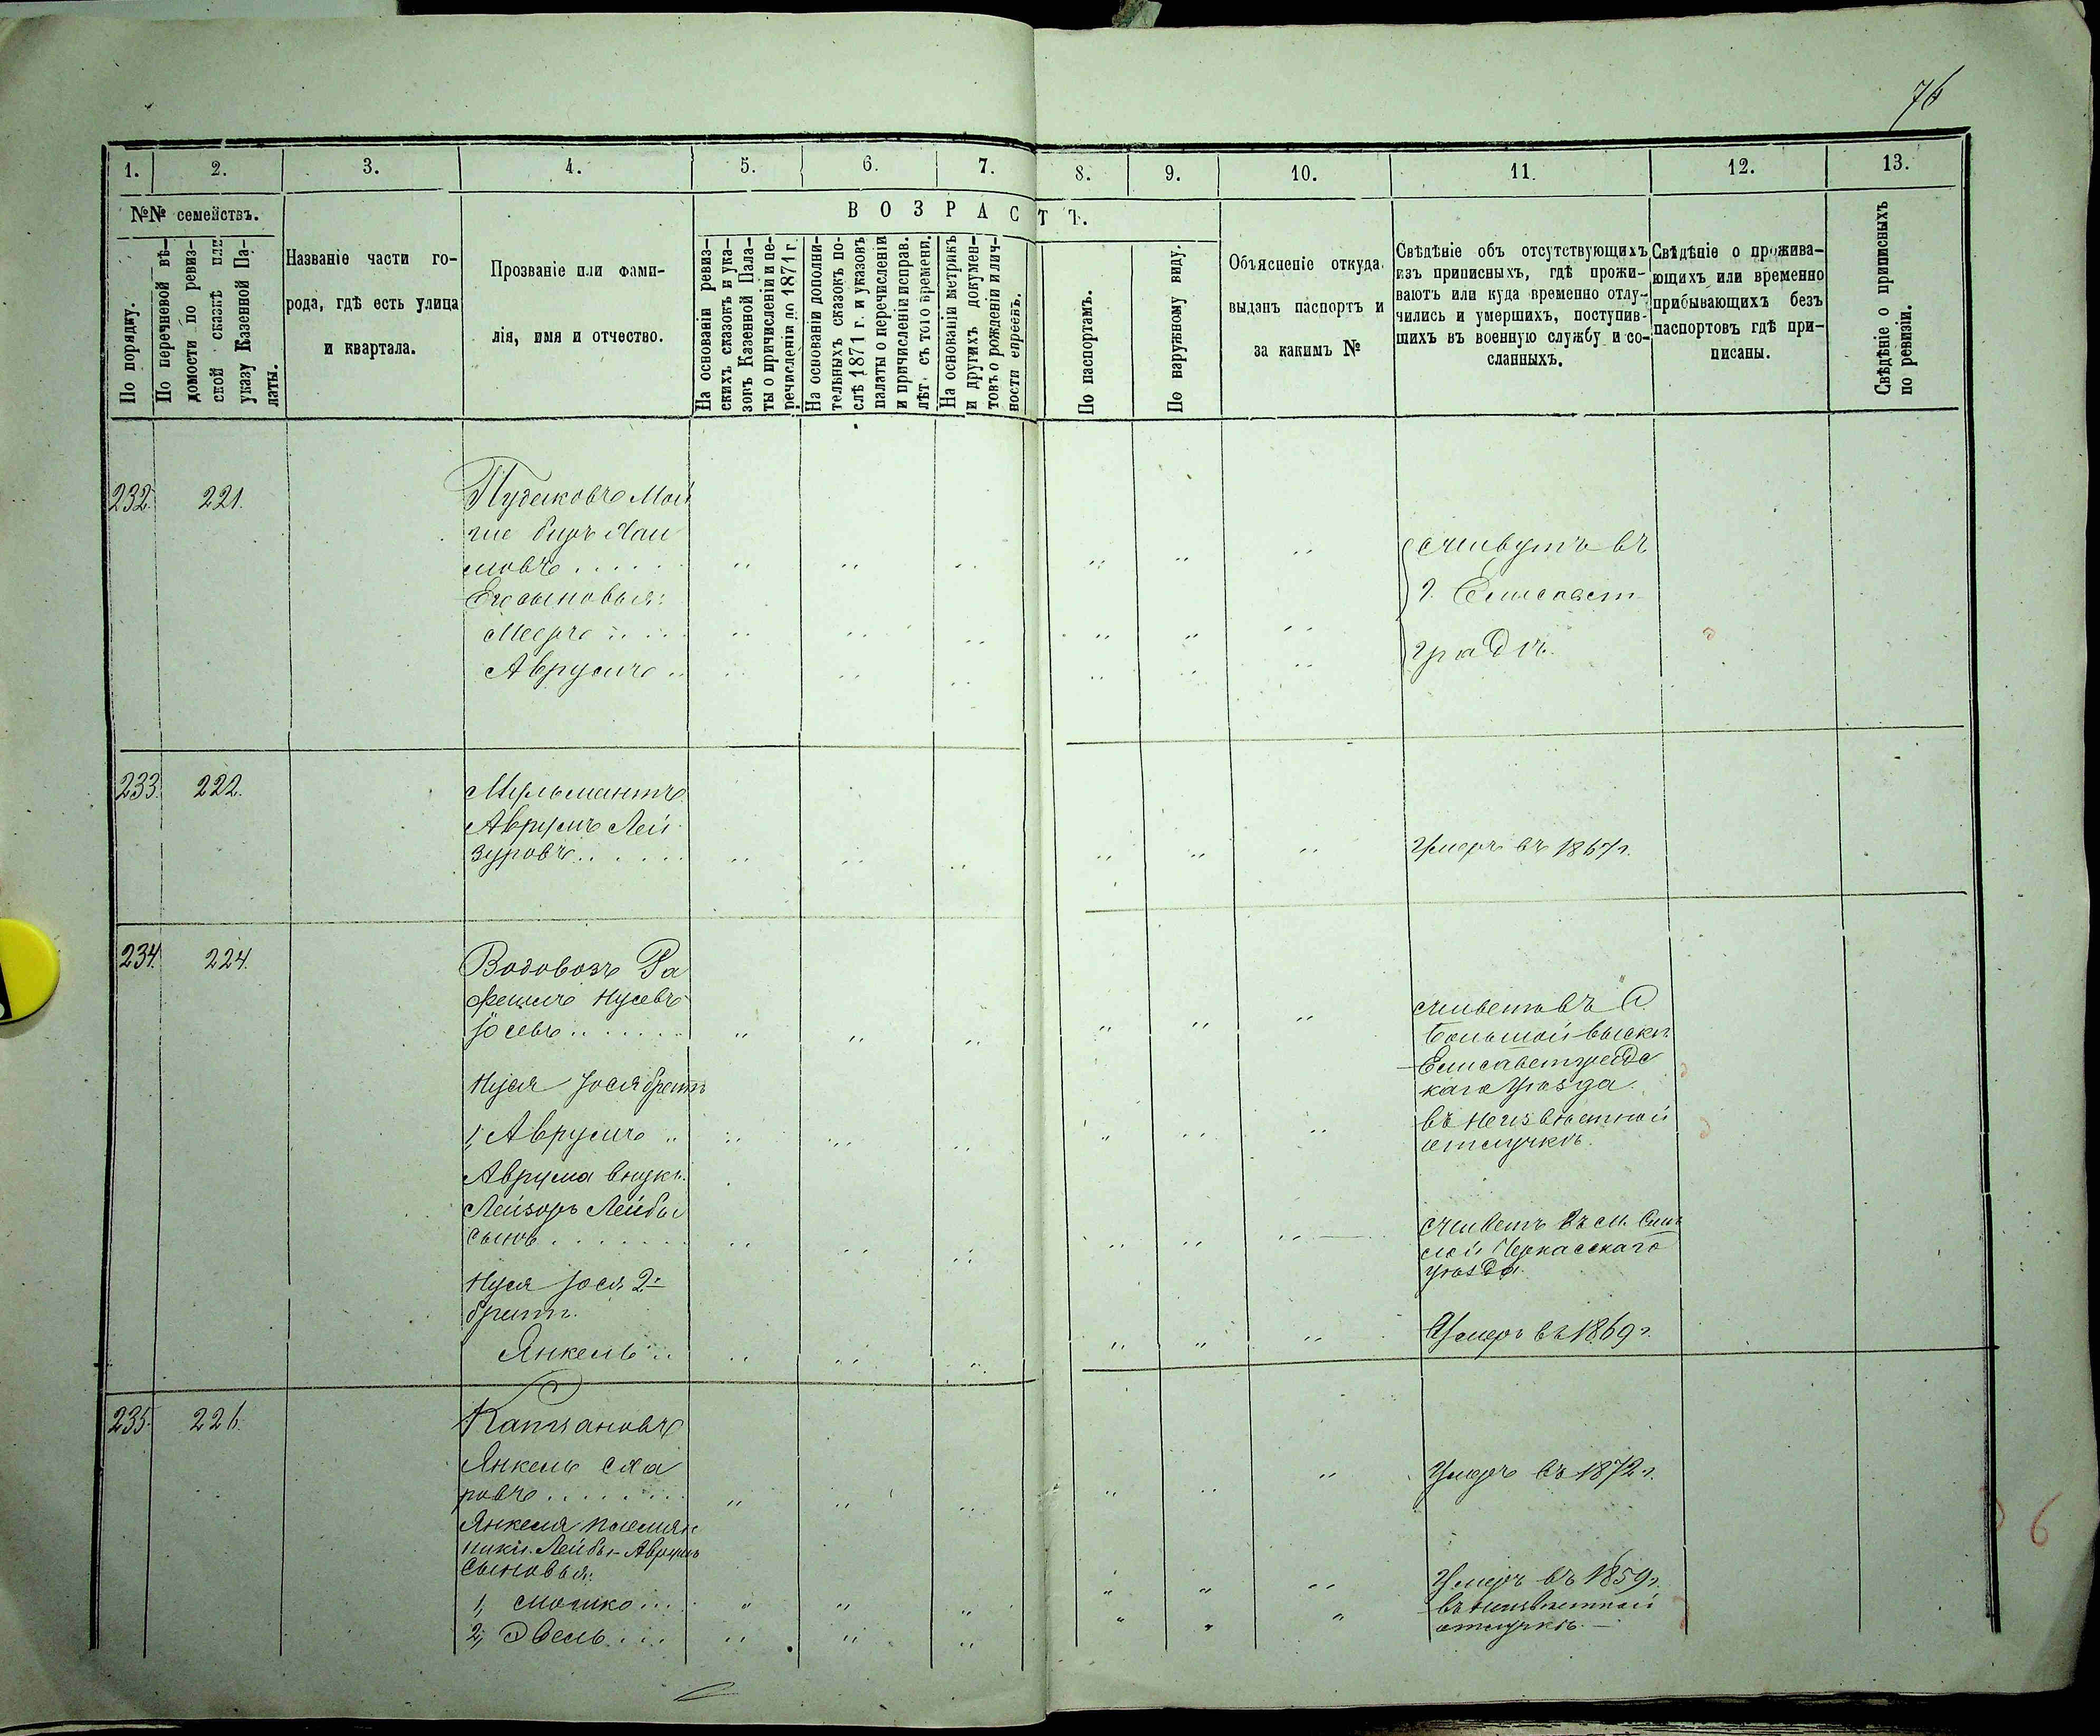 76
1. 2. 3. 4. 5. 6. 7. 8. 9. 10. 11. 12. 13.
№№ семействъ.
По порядку.
По перечневой вѣ-
домости по ревиз-
ской сказкѣ или
указу Казенной Па-
латы.
Названіе части го-
рода, гдѣ есть улица
и квартала.
Прозваніе или фами-
лія, имя и отчество.
ВОЗРАСТЪ.
На основаніи ревиз-
скихъ сказокъ и ука-
зовъ Казенной Пала-
ты о причисленіи и пе-
речисленіи до 1871 г.
На основаніи дополни-
тельныхъ сказокъ по-
слѣ 1871 г. и указовъ
палаты о перечисленіи
и причисленіи исправ.
лѣт. съ того времени.
На основаніи метрикъ
и другихъ докумен-
товъ о рожденіи и лич-
ности евреевъ.
По паспортамъ.
По наружному виду.
Объясненіе откуда
выданъ паспортъ и
за какимъ №
Свѣдѣніе объ отсутствующихъ
изъ приписныхъ, гдѣ прожи-
ваютъ или куда временно отлу-
чились и умершихъ, поступив-
шихъ въ военную службу и со-
сланныхъ.
Свѣдѣніе о прожива-
ющихъ или временно
прибывающихъ безъ
паспортовъ гдѣ при-
писаны.
Свѣдѣніе о приписныхъ
по ревизіи.
232. 221.
Мой
ше Хаи
мовъ
Его сыновья:
Мееръ
Аврумъ
живутъ въ
г. Елисавет
градѣ.
233. 222.
Аврумъ Лей
зуровъ
Умеръ въ 1867 г.
234. 224.
Водовозъ Ра
фаилъ Нусевъ
Іосевъ
живетъ въ С.
Большой Выскѣ
Елисаветградс
каго Уѣзда.
Нуся Іося братъ
1, Аврумъ
въ неизвѣстной
отлучкѣ.
Аврума внукъ
Лейзоръ Лейбы
сынъ
живетъ въ м.
Черкасскаго
уѣзда.
Нуся Іося 2й
братъ.
Янкель
Умеръ въ 1869 г.
235. 226.
Капчановъ
Янкель
ровъ
Умеръ въ 1872 г.
Янкеля племян
ники Лейбы-Аврумъ
сыновья:
1, Мошко
Умеръ въ 1859 г.
2,
въ неизвѣстной
отлучкѣ.
6